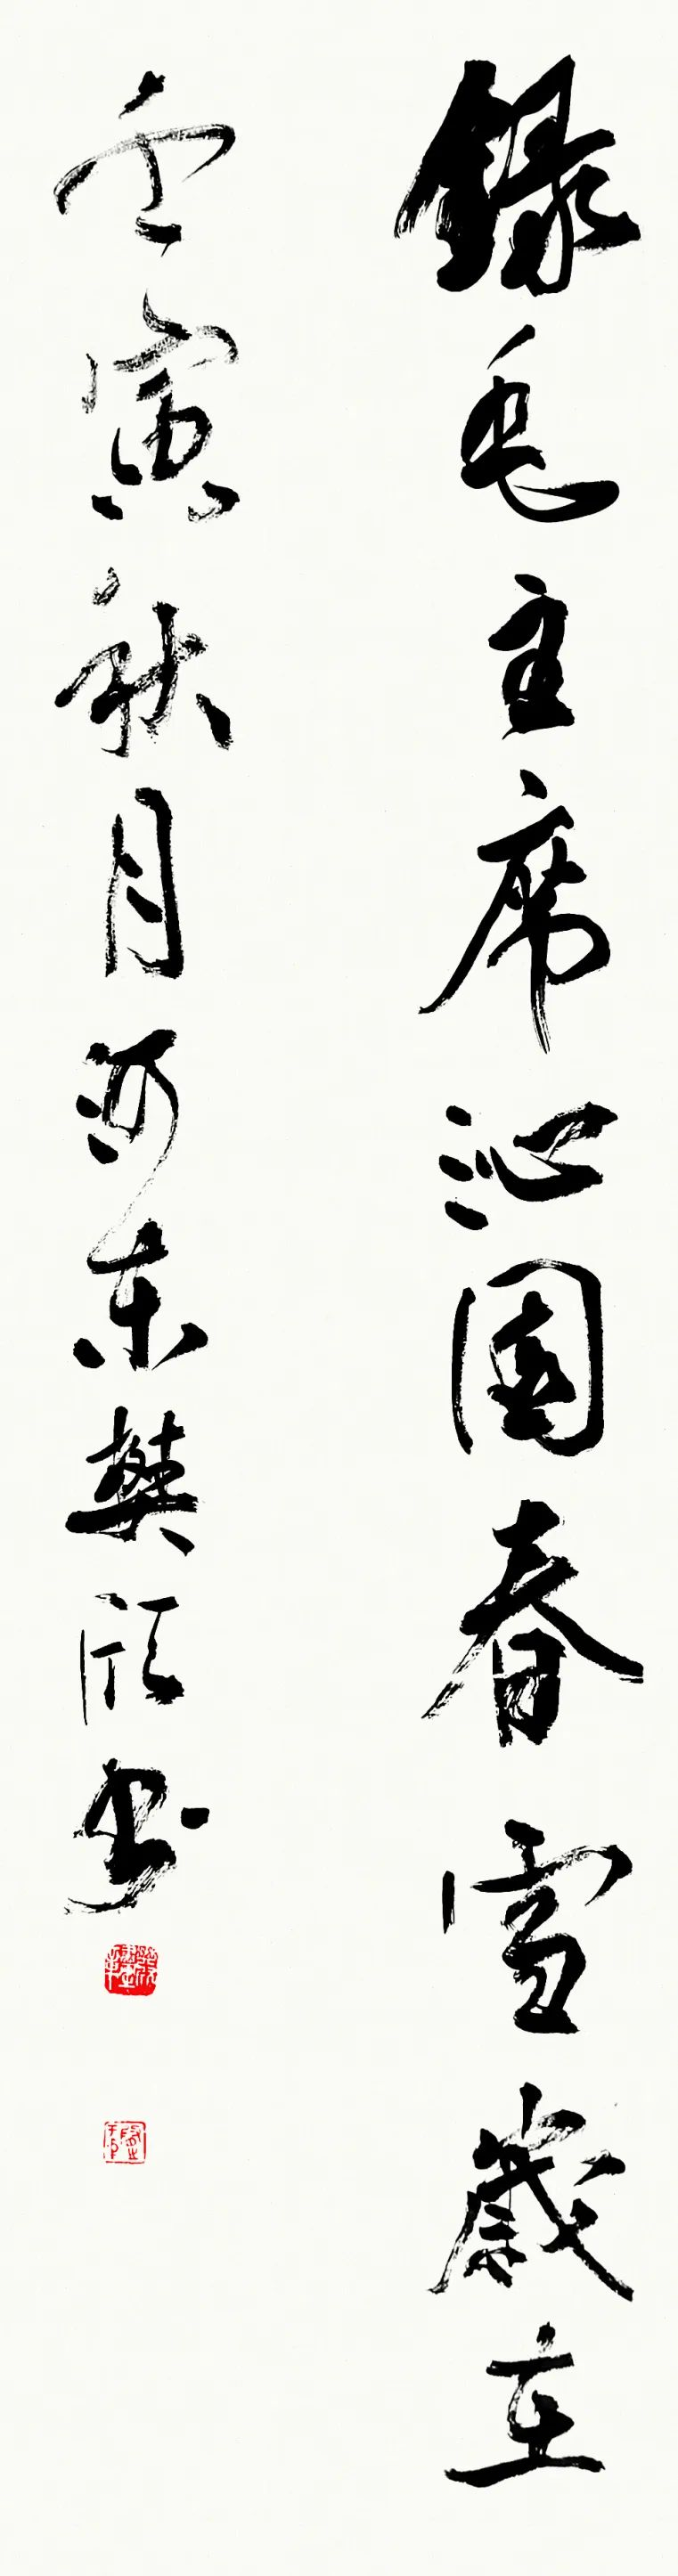 錄毛主席沁園春雪歲在
壬寅秋月河東樊書